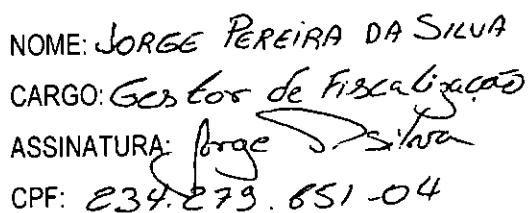 NOME: JORGE PEREIRA DA SILVA
CARGO: Gestor de Fiscalização
ASSINATURA: Jorge P Silva
CPF: 234.279.651-04